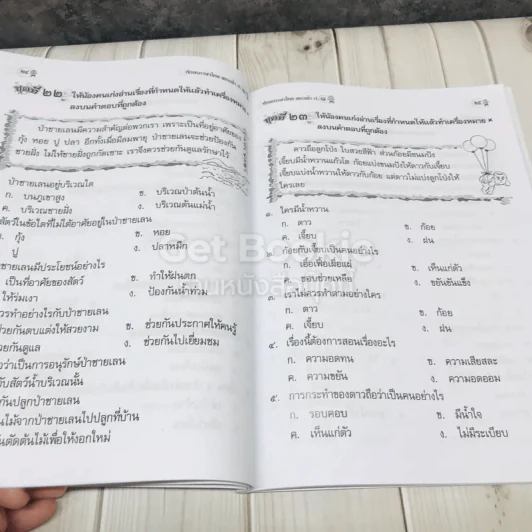 ชุดที่ ๒๒ ให้น้องคนเก่งอ่านเรื่องที่กำหนดให้แล้วทำเครื่องหมาย
ลงบนคำตอบที่ถูกต้อง
ป่าชายเลนมีความสำคัญต่อพวกเรา เพราะเป็นที่อยู่อาศัยของ
กุ้ง หอย ปู ปลา อีกทั้งเมื่อมีลมพายุ ป่าชายเลนจะช่วยป้องกัน
ชายฝั่ง ไม่ให้ชายฝั่งถูกกัดเซาะ เราจึงควรช่วยกันดูแลรักษาไว้
ป่าชายเลนอยู่บริเวณใด
ก. บนภูเขาสูง ข. บริเวณป่าต้นน้ำ
ค. บริเวณชายฝั่ง ง. บริเวณต้นแม่น้ำ
สัตว์ในข้อใดที่ไม่ได้อาศัยอยู่ในป่าชายเลน
กุ้ง ข. หอย
ปู ง. ปลาหมึก
ชายเลนมีประโยชน์อย่างไร
เป็นที่อาศัยของสัตว์ ข. ทำให้ฝนตก
ให้ร่มเงา ง. ป้องกันน้ำท่วม
ควรทำอย่างไรกับป่าชายเลน
ช่วยกันตบแต่งให้สวยงาม ข. ช่วยกันประกาศให้คนรู้
ช่วยกันดูแล ง. ช่วยกันไปเยี่ยมชม
ถือว่าเป็นการอนุรักษ์ป่าชายเลน
จับสัตว์น้ำบริเวณนั้น
กันปลูกป่าชายเลน
นไม้จากป่าชายเลนไปปลูกที่บ้าน
ตัดต้นไม้เพื่อให้งอกใหม่
ชุดที่ ๒๓ ให้น้องคนเก่งอ่านเรื่องที่กำหนดให้แล้วทำเครื่องหมาย ×
ลงบนคำตอบที่ถูกต้อง
ดาวถือลูกโป่ง ใบสวยสีฟ้า ส่วนก้อยมีขนมปัง
เจี๊ยบมีน้ำหวานแก้วโต ก้อยแบ่งขนมปังให้ดาวกับเจี๊ยบ
เจี๊ยบแบ่งน้ำหวานให้ดาวกับก้อย แต่ดาวไม่แบ่งลูกโป่งให้
ใครเลย
๑. ใครมีน้ำหวาน
ก. ดาว ข. ก้อย
ค. เจี๊ยบ ง. ฝน
ก้อยกับเจี๊ยบเป็นคนอย่างไร
ก. เอื้อเฟื้อเผื่อแผ่ ข. เห็นแก่ตัว
ค. ชอบช่วยเหลือ ง. ขยันขันแข็ง
๓. เราไม่ควรทำตามอย่างใคร
ก. ดาว ข. ก้อย
ค. เจี๊ยบ ง. ฝน
๔. เรื่องนี้ต้องการสอนเรื่องอะไร
ก. ความอดทน ข. ความเสียสละ
ค. ความขยัน ง. ความอดออม
๕. การกระทำของดาวถือว่าเป็นคนอย่างไร
ก. รอบคอบ ข. มีน้ำใจ
ค. เห็นแก่ตัว ง. ไม่มีระเบียบ